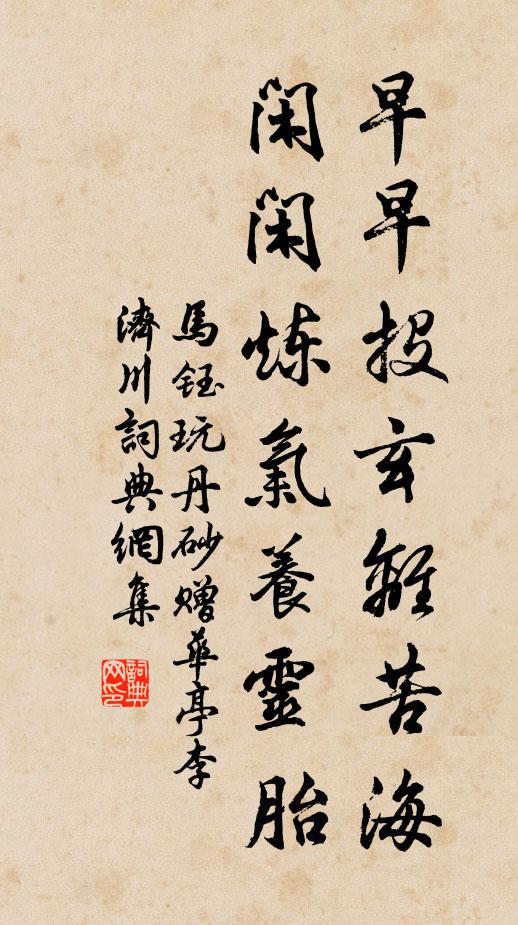 早早投玄離苦海
閑閑炼氣養靈胎
馬鈺玩丹砂赠華亭李
濟川詞典網集
詞典网印